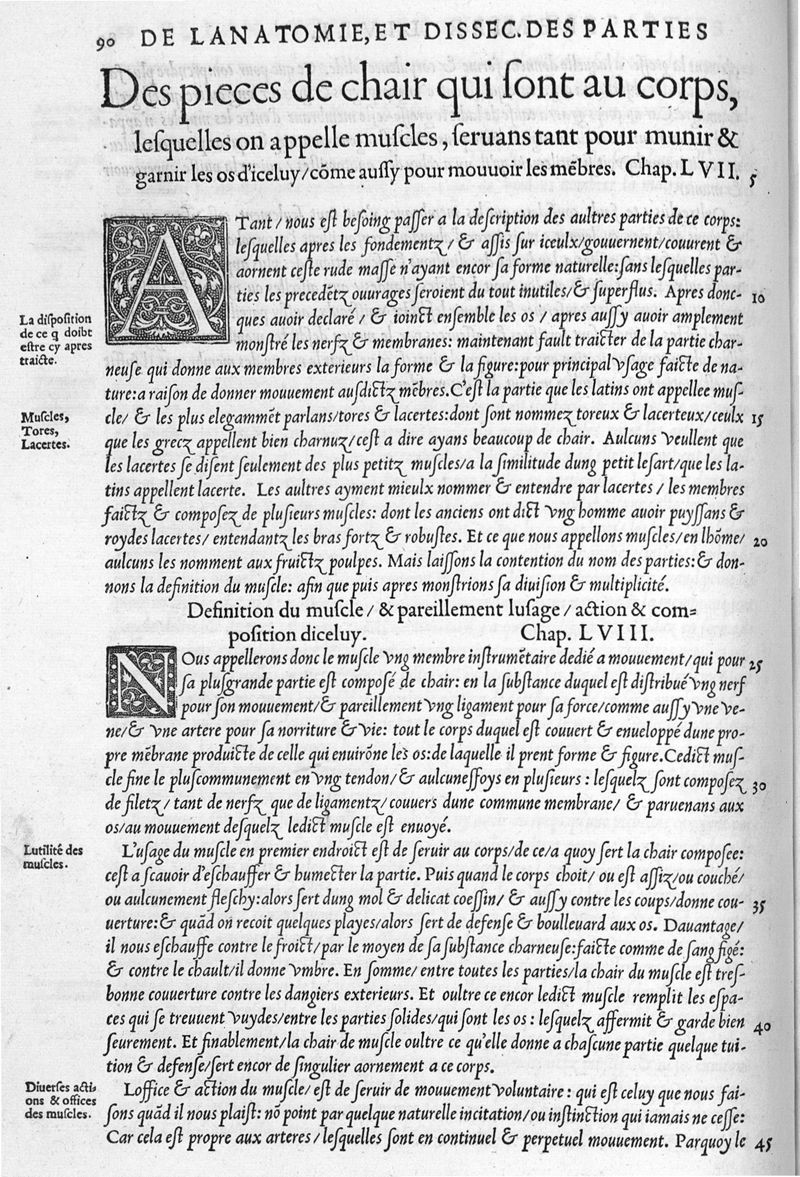 90 DE LANATOMIE, ET DISSEC. DES PARTIES
Des pieces de chair qui ſont au corps,
leſquelles on appelle muſcles, ſeruans tant pour munir &
garnir les os d'iceluy/cõme auſſy pour mouuoir les mẽbres. Chap. LVII. 5
ATant/ nous eſt beſoing paſſer a la deſcription des aultres parties de ce corps:
leſquelles apres les fondementz/ & aſſis ſur iceulx/gouuernent/couurent &
aornent ceſte rude maſſe n'ayant encor ſa forme naturelle:ſans leſquelles par-
ties les precedẽtz ouurages ſeroient du tout inutiles/& ſuperflus. Apres donc- 10
La diſpoſition
de ce q doibt
eſtre cy apres
traicte.
ques auoir declaré / & ioinct enſemble les os / apres auſſy auoir amplement
monſtré les nerfz & membranes: maintenant fault traicter de la partie char-
neuſe qui donne aux membres exterieurs la forme & la figure:pour principal vſage faicte de na-
ture:a raiſon de donner mouuement auſdictz mẽbres.C'eſt la partie que les latins ont appellee muſ-
Muſcles,
Tores,
Lacertes.
cle/ & les plus elegammẽt parlans/tores & lacertes:dont ſont nommez toreux & lacerteux/ceulx 15
que les grecz appellent bien charnuz/ceſt a dire ayans beaucoup de chair. Aulcuns veullent que
les lacertes ſe diſent ſeulement des plus petitz muſcles/a la ſimilitude dung petit leſart/que les la-
tins appellent lacerte. Les aultres ayment mieulx nommer & entendre par lacertes / les membres
faictz & compoſez de pluſieurs muſcles: dont les anciens ont dict vng homme auoir puyſſans &
roydes lacertes/ entendantz les bras fortz & robuſtes. Et ce que nous appellons muſcles/en lhõme/ 20
aulcuns les nomment aux fruictz poulpes. Mais laiſſons la contention du nom des parties:& don-
nons la definition du muſcle: afin que puis apres monſtrions ſa diuiſion & multiplicité.
Definition du muſcle / & pareillement luſage / action & com=
poſition diceluy. Chap. LVIII.
NOus appellerons donc le muſcle vng membre inſtrumẽtaire dedié a mouuement/qui pour 25
ſa pluſgrande partie eſt compoſé de chair: en la ſubſtance duquel eſt diſtribué vng nerf
pour ſon mouuement/& pareillement vng ligament pour ſa force/comme auſſy vne ve-
ne/& vne artere pour ſa norriture & vie: tout le corps duquel eſt couuert & enueloppé dune pro-
pre mẽbrane produicte de celle qui enuirõne les os:de laquelle il prent forme & figure.Cedict muſ-
cle fine le pluſcommunement en vng tendon/& aulcuneſſoys en pluſieurs : leſquelz ſont compoſez 30
de filetz/ tant de nerfz que de ligamentz/couuers dune commune membrane/ & paruenans aux
os/au mouuement deſquelz ledict muſcle eſt enuoyé.
Lutilité des
muſcles.
L'uſage du muſcle en premier endroict eſt de ſeruir au corps/de ce/a quoy ſert la chair compoſee:
ceſt a ſcauoir d'eſchauffer & humecter la partie. Puis quand le corps choit/ ou eſt aſſiz/ou couché/
ou aulcunement fleſchy:alors ſert dung mol & delicat coeſſin/ & auſſy contre les coups/donne cou- 35
uerture:& quãd on recoit quelques playes/alors ſert de defenſe & boulleuard aux os. Dauantage/
il nous eſchauffe contre le froict/par le moyen de ſa ſubſtance charneuſe:faicte comme de ſang figé:
& contre le chault/il donne vmbre. En ſomme/ entre toutes les parties/la chair du muſcle eſt treſ-
bonne couuerture contre les dangiers exterieurs. Et oultre ce encor ledict muſcle remplit les eſpa-
ces qui ſe treuuent vuydes/entre les parties ſolides/qui ſont les os : leſquelz affermit & garde bien 40
ſeurement. Et finablement/la chair de muſcle oultre ce qu'elle donne a chaſcune partie quelque tui-
tion & defenſe/ſert encor de ſingulier aornement a ce corps.
Diuerſes acti
ons & offices
des muſcles.
Loffice & action du muſcle/ eſt de ſeruir de mouuement voluntaire : qui eſt celuy que nous fai-
ſons quãd il nous plaiſt: nõ point par quelque naturelle incitation/ou inſtinction qui iamais ne ceſſe:
Car cela eſt propre aux arteres/leſquelles ſont en continuel & perpetuel mouuement. Parquoy le 45